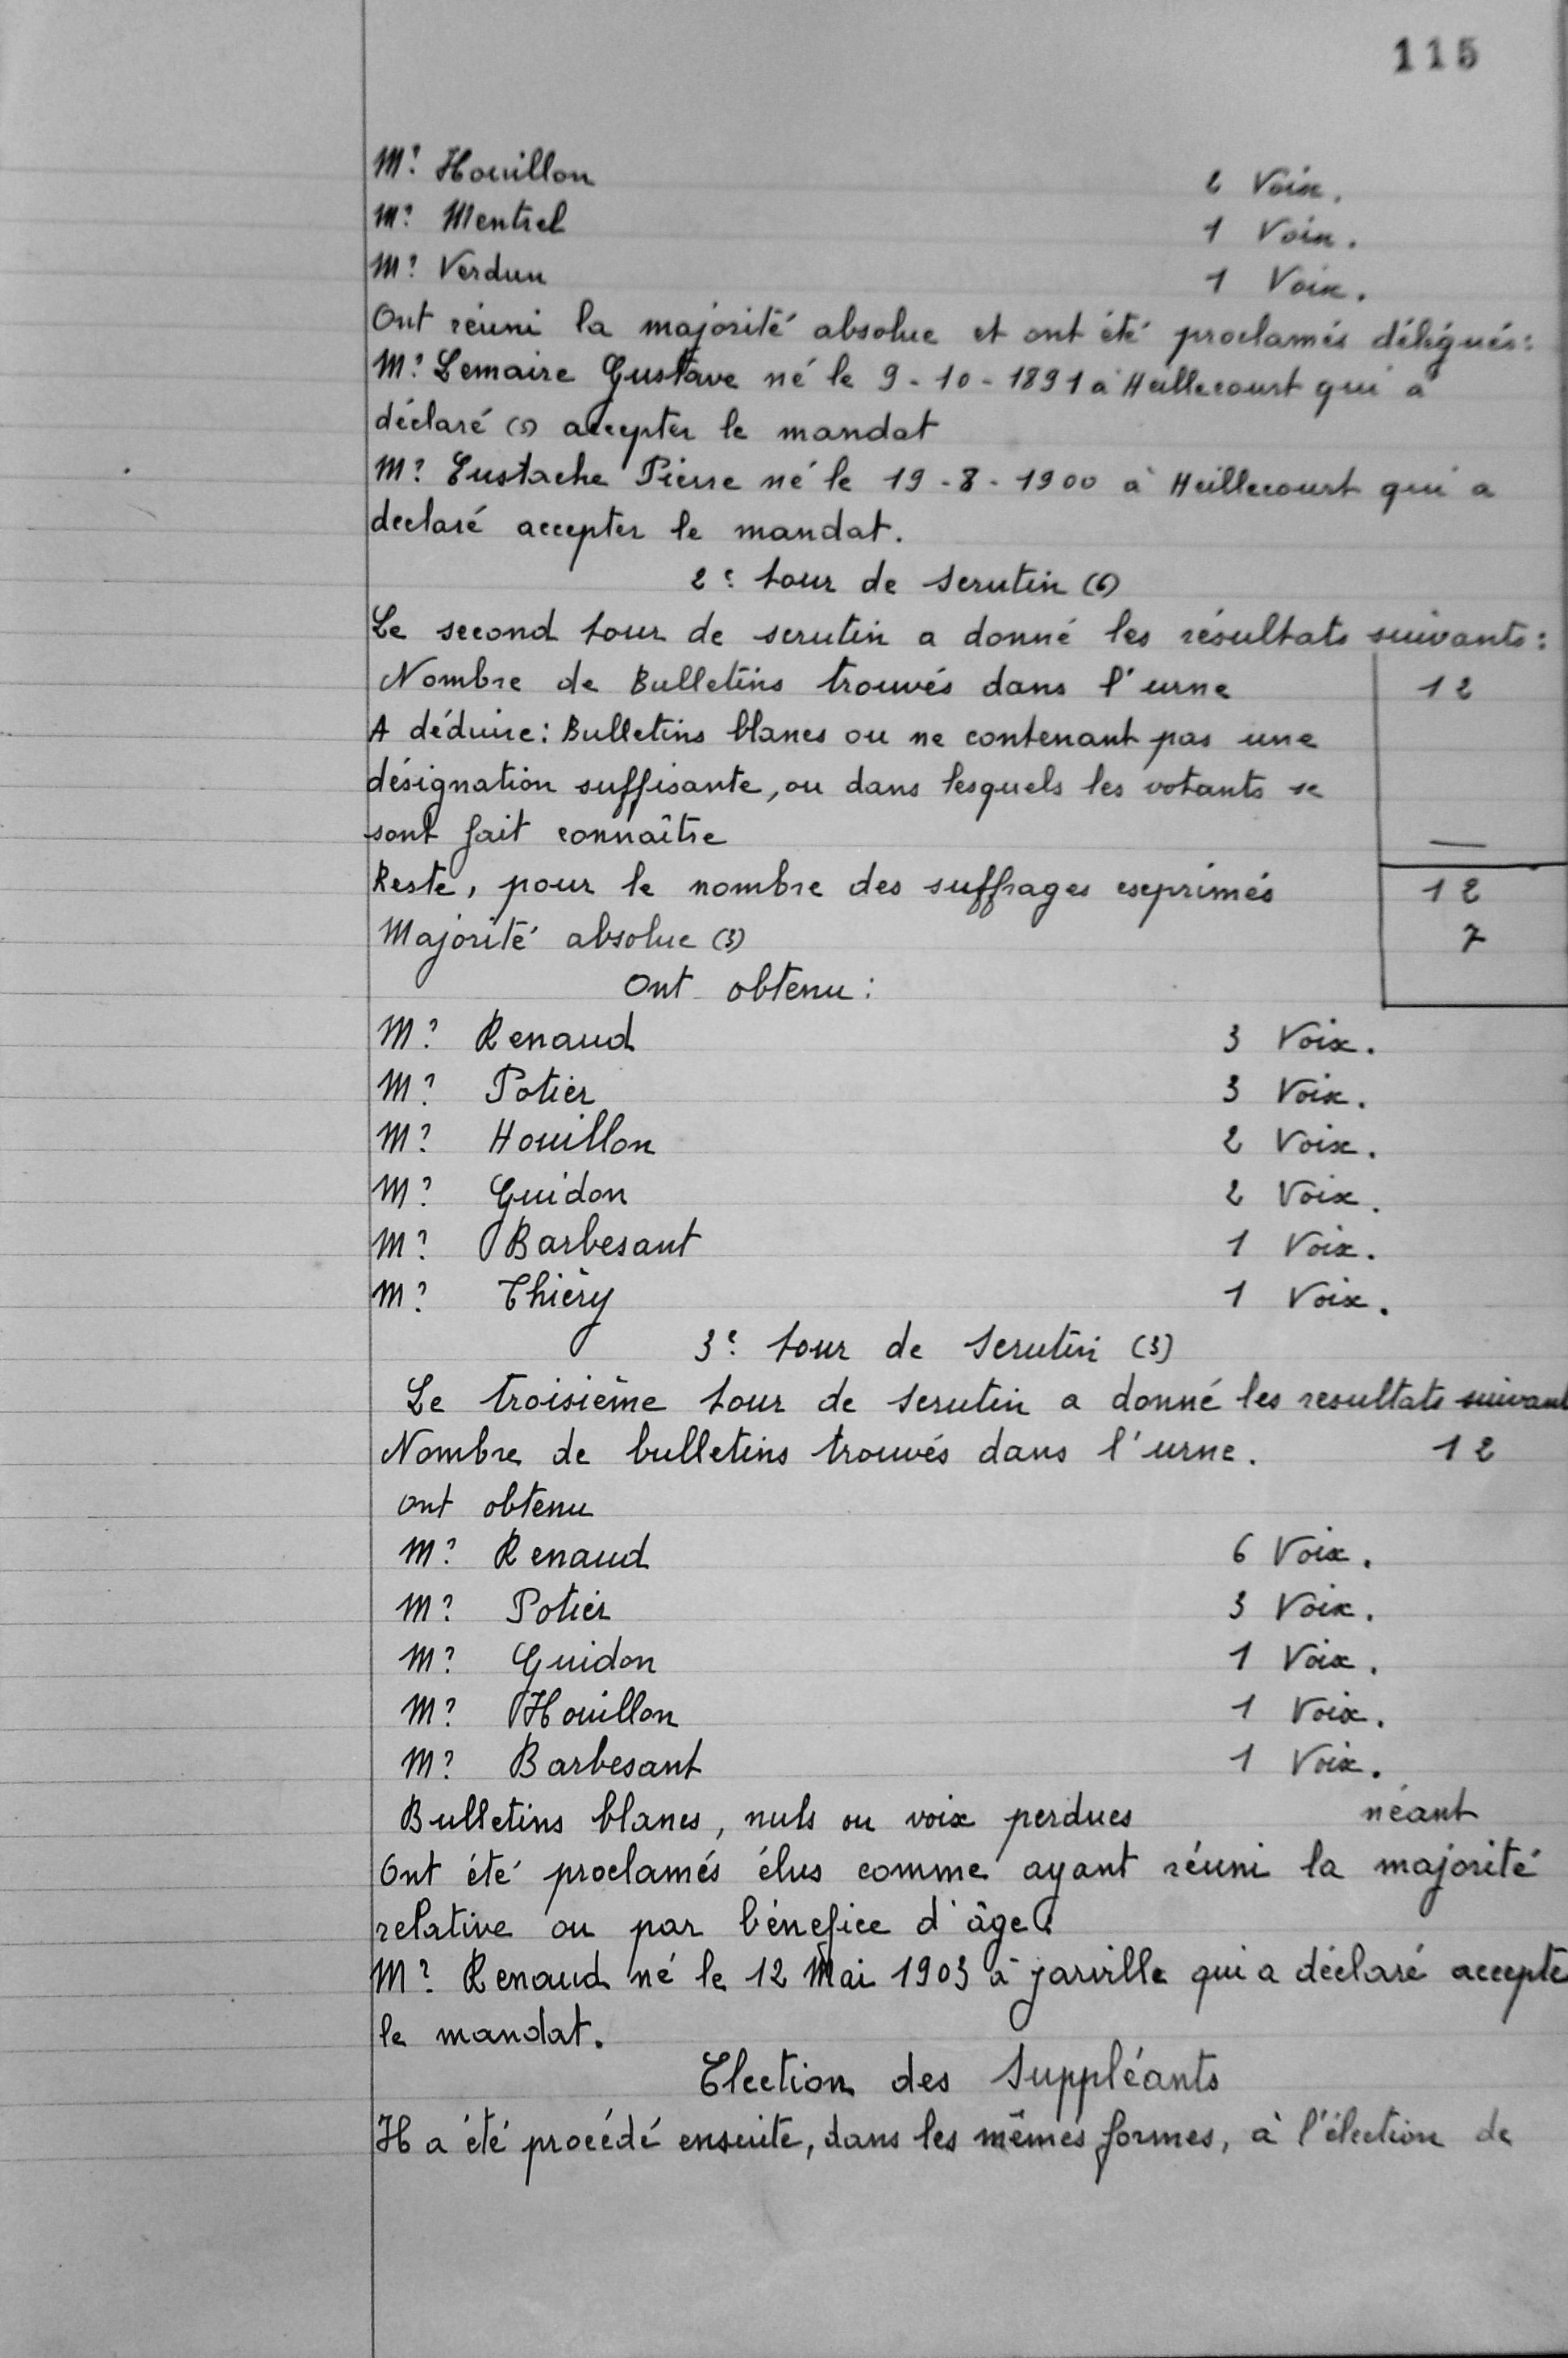 115
Mr Houillon 2 Voix.
Mr Mentrel 1 Voix.
Mr Verdun 1 Voix.
Ont réuni la majorité absolue et ont été proclamés délégués:
Mr Lemaire Gustave né le 9-10-1891 à Heillecourt qui a
déclaré (5) accepter le mandat
Mr Eustache Pierre né le 19-8-1900 à Heillecourt qui a
declaré accepter le mandat.
2e tour de scrutin (6)
Le second tour de scrutin a donné les résultats suivants:
Nombre de Bulletins trouvés dans l'urne 12
A déduire: Bulletins blancs ou ne contenant pas une
désignation suffisante, ou dans lesquels les votants se
sont fait connaître —
Reste, pour le nombre des suffrages exprimés 12
Majorité absolue (3) 7
Ont obtenu:
Mr Renaud 3 Voix.
Mr Potier 3 Voix.
Mr Houillon 2 Voix.
Mr Guidon 2 Voix.
Mr Barbesant 1 Voix.
Mr Thiéry 1 Voix.
3e tour de scrutin (3)
Le troisième tour de scrutin a donné les resultats suivant
Nombre de bulletins trouvés dans l'urne. 12
ont obtenu
Mr Renaud 6 Voix.
Mr Potier 3 Voix.
Mr Guidon 1 Voix.
Mr Houillon 1 Voix.
Mr Barbesant 1 Voix.
Bulletins blancs, nuls ou voix perdues néant
Ont été proclamés élus comme ayant réuni la majorité
relative ou par bénefice d'âge:
Mr Renaud né le 12 Mai 1903 à jarville qui a déclaré accepte
le mandat.
Election des Suppléants
Il a été procédé ensuite, dans les mêmes formes, à l'élection de